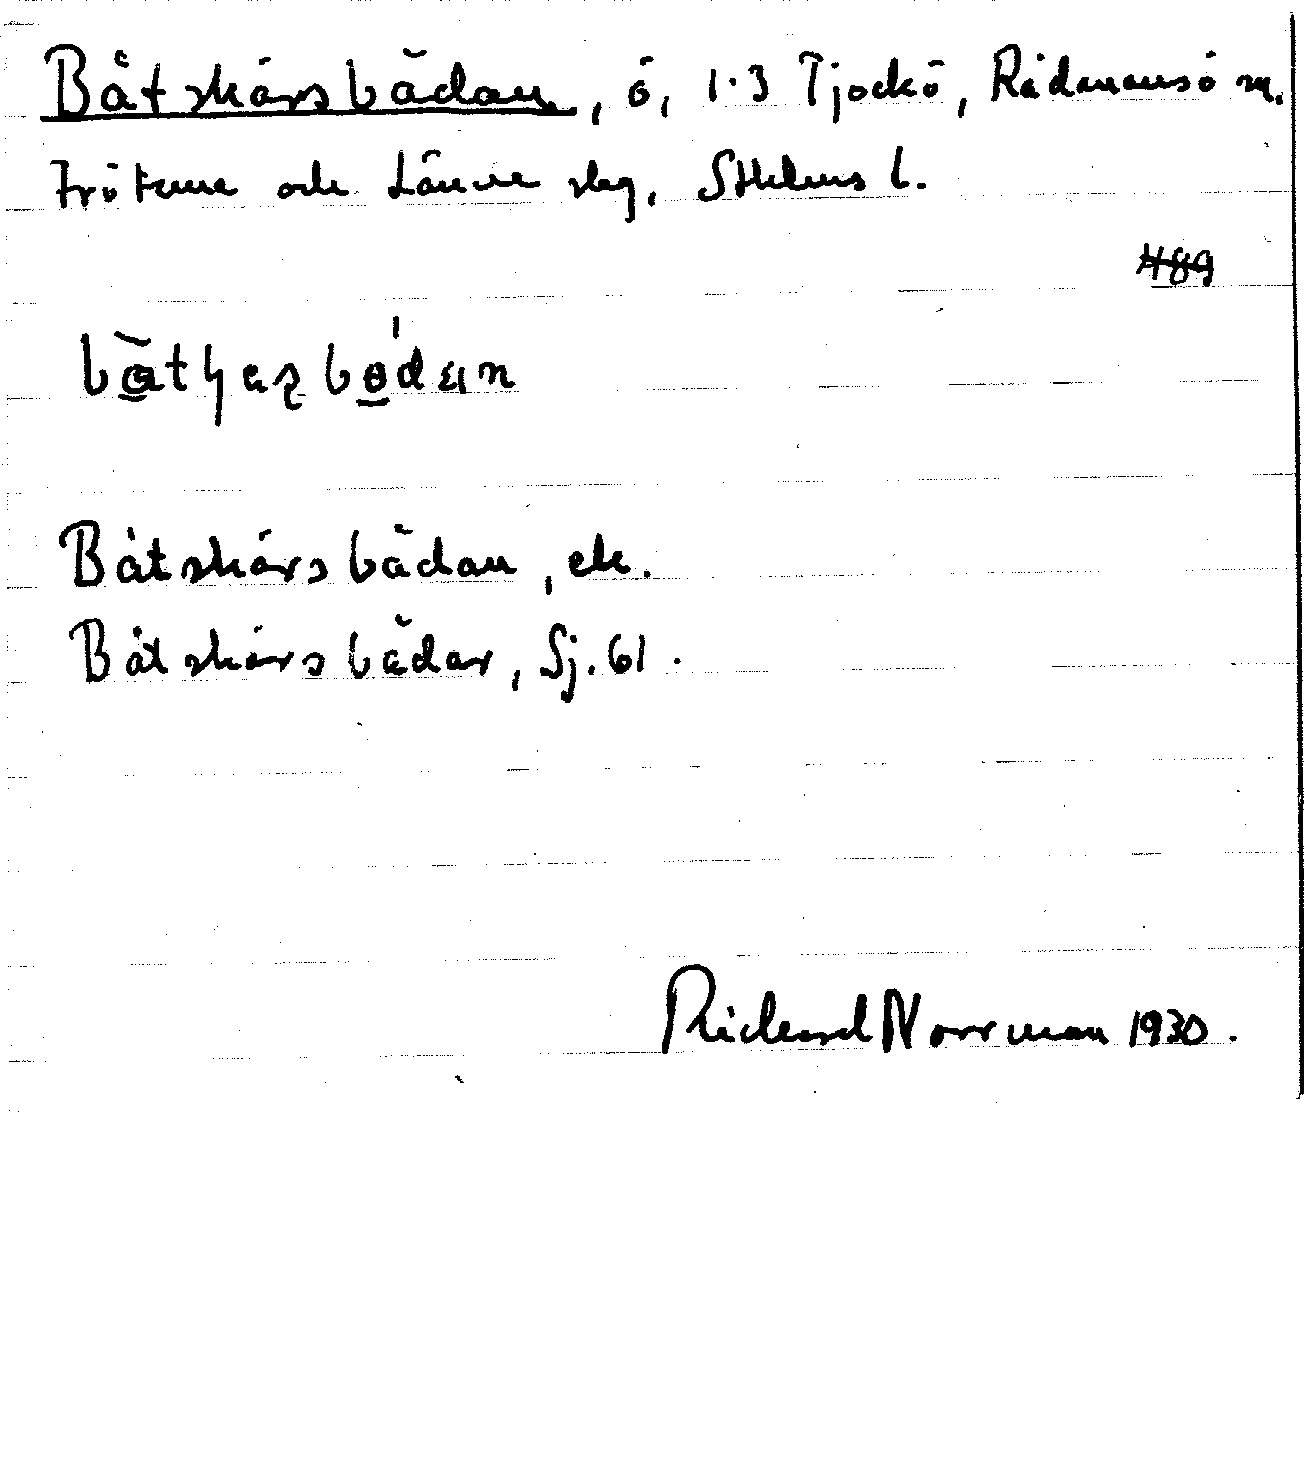 Båtskärsbådan, ö, 1.3 Tjockö, Rådmansö sn.
Frötuna och Länna slg, Sthlms l.
Båtskärsbådan, ek.
Båtskärsbådar, Sj. 61.
Richard Norrman 1930.